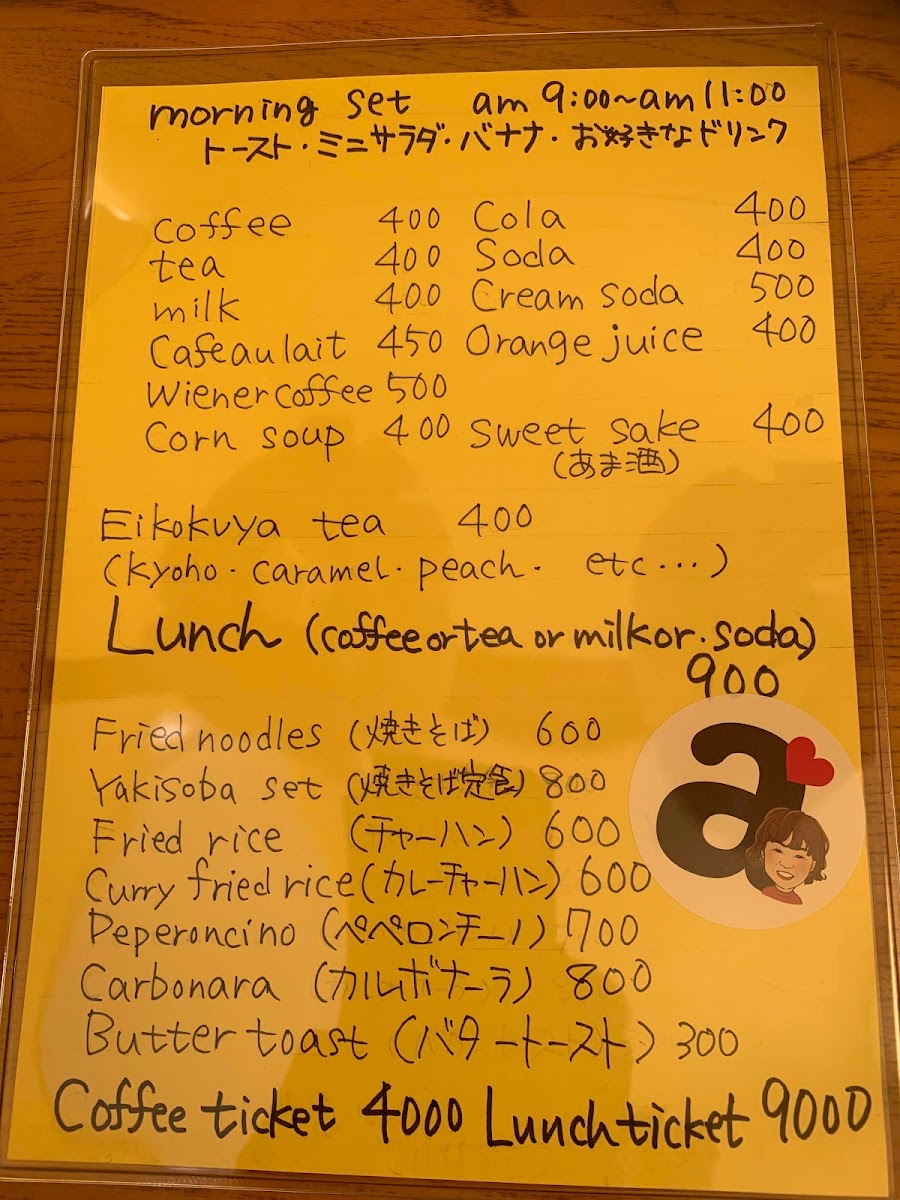 morning set am 9:00~am 11:00
トースト・ミニサラダ・バナナ・お好きなドリンク
coffee 400 Cola 400
tea 400 Soda 400
milk 400 Cream soda 500
Cafe au lait 450 Orange juice 400
Wiener coffee 500
Corn soup 400 sweet sake 400
(あま酒)
Eikokuya tea 400
(kyoho・caramel・peach・ etc...)
Lunch (coffee or tea or milk or・soda)
900
Fried noodles (焼きそば) 600
Yakisoba set (焼きそば定食) 800
Fried rice (チャーハン) 600
Curry fried rice (カレーチャーハン) 600
Peperoncino (ペペロンチーノ) 700
Carbonara (カルボナーラ) 800
Butter toast (バタートースト) 300
a
Coffee ticket 4000 Lunch ticket 9000